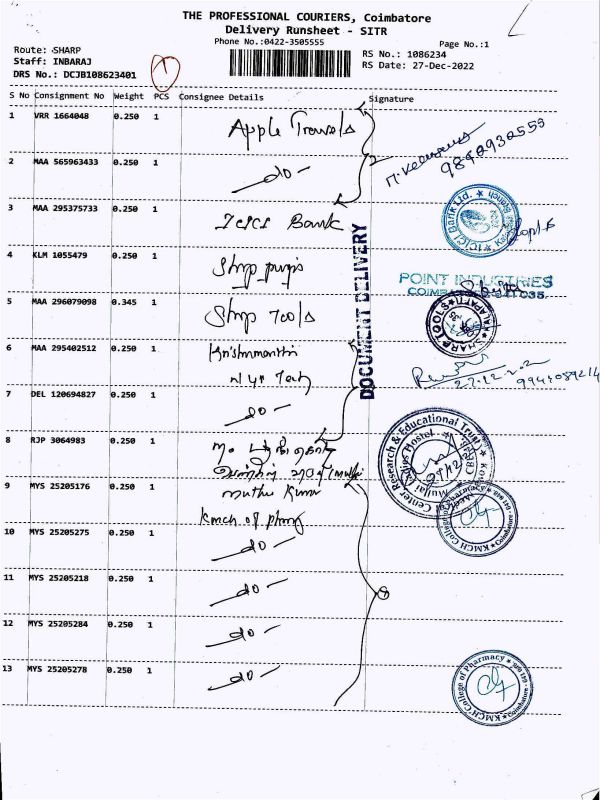 THE PROFESSIONAL COURIERS, Coimbatore
Delivery Runsheet - SITR
Phone No.:0422-3505555
Page No.:1
Route: SHARP
Staff: INBARAJ
DRS No.: DCJB108623401
1
RS No.: 1086234
RS Date: 27-Dec-2022
S No Consignment No Weight PCS Consignee Details Signature
1 VRR 1664048 0.250 1 Apple Travels
9842932553
2 MAA 565963433 0.250 1 — do —
3 MAA 295375733 0.250 1 ICICI Bank
ICICI Bank Ltd.
4 KLM 1055479 0.250 1 Sharp pumps
POINT INDUSTRIES
5 MAA 296079098 0.345 1 Sharp Tools
SHARP TOOLS
DOCUMENT DELIVERY
6 MAA 295402512 0.250 1
27.12.22
7 DEL 120694827 0.250 1 — do —
8 RJP 3064983 0.250 1
Center Research & Educational Trust
Mullai Ladies Hostel
9 MYS 25205176 0.250 1 Muthu Kumar
kmch of pharmy
KMCH College of Pharmacy
Coimbatore
10 MYS 25205275 0.250 1 — do —
11 MYS 25205218 0.250 1 — do —
12 MYS 25205284 0.250 1 — do —
13 MYS 25205278 0.250 1 — do —
KMCH College of Pharmacy
Coimbatore